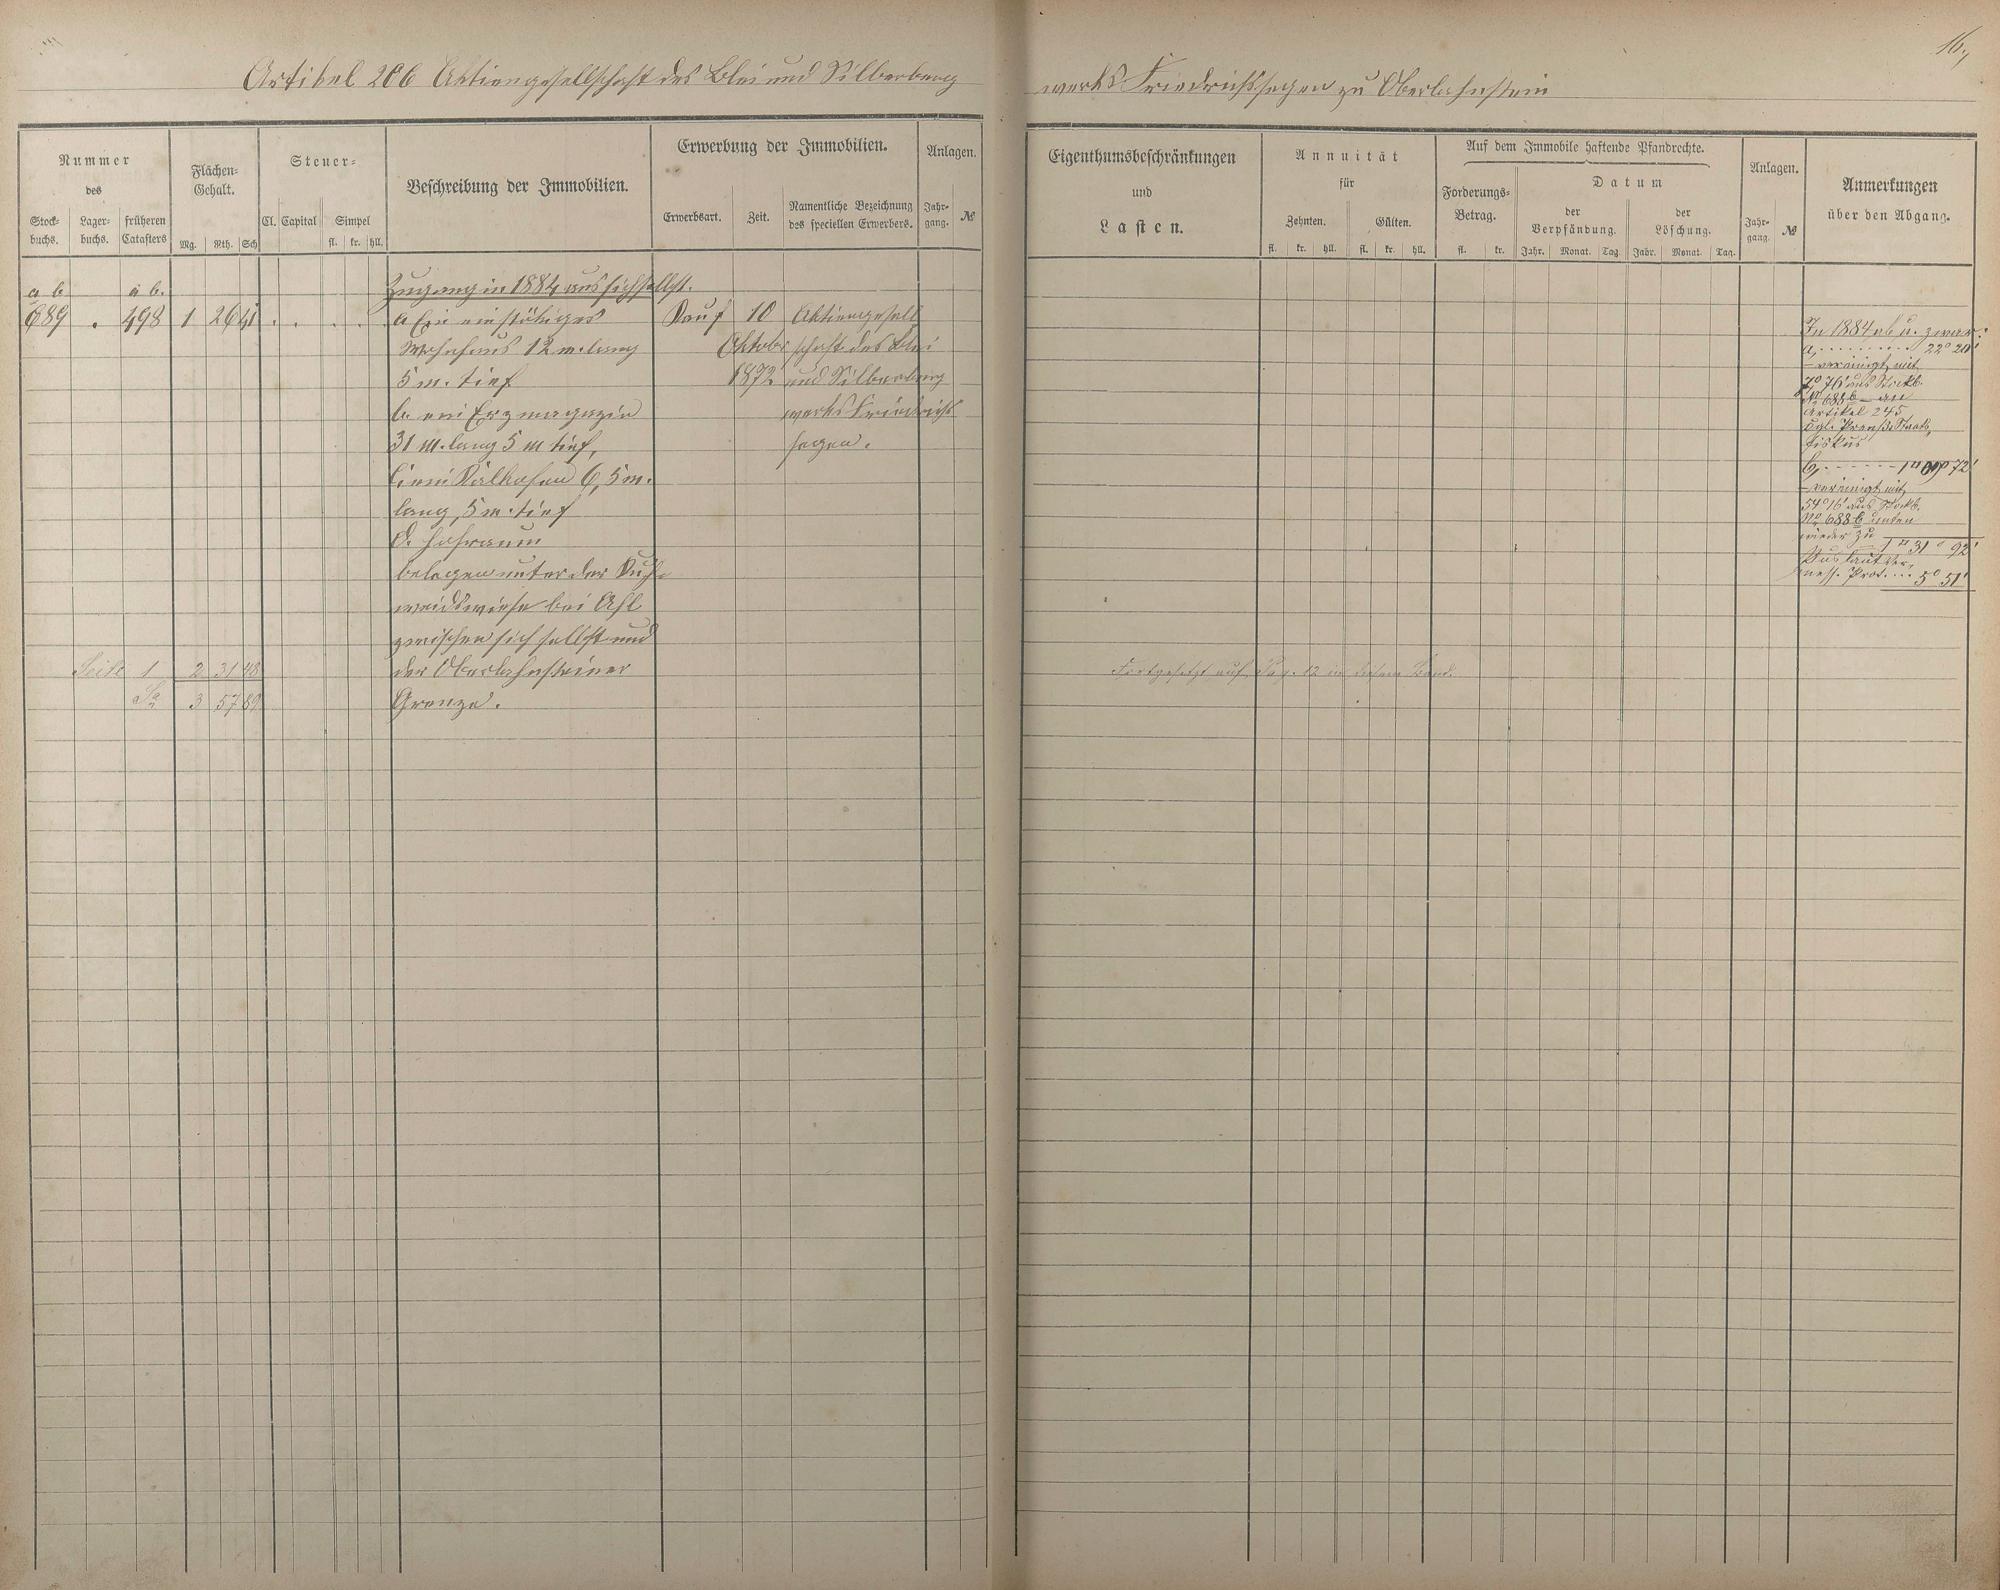 16.,
Artikel 206 Aktiengesellschaft des Blei und Silberberg
werks Friedrichssegen zu Oberlahnstein
Nummer
des
Stock-
buchs.
Lager-
buchs.
früheren
Catasters
Flächen-
Gehalt.
Mg. Rth. Sch
Steuer-
Cl. Capital Simpel
fl. kr. hll.
Beschreibung der Immobilien.
Erwerbung der Immobilien.
Erwerbsart. Zeit. Namentliche Bezeichnung
des speciellen Erwerbers.
Anlagen.
Jahr-
gang. №
Eigenthumsbeschränkungen
und
Lasten.
Annuität
für
Zehnten. Gülten.
fl. kr. hll. fl. kr. hll.
Auf dem Immobile haftende Pfandrechte.
Forderungs-
Betrag.
fl. kr.
Datum
der
Verpfändung.
der
Löschung.
Jahr. Monat. Tag. Jahr. Monat. Tag.
Anlagen.
Jahr-
gang. №
Anmerkungen
über den Abgang.
Zugang in 1884 aus sich selbst.
a b a b.
689 . 498 1 26 41 . . . . . a Ein einstökiges Kauf 10 Aktiengesell
Wohnhaus 12 m. lang Oktobr schaft des Blei
5 m. tief 1872 und Silberberg
b. ein Erzmagazin werks Friedrichs
31 m. lang 5 m tief, segen.
c. ein Kalkofen 6,5 m.
lang, 5 m. tief
d. Hofraum
belegen unter der Kuh
weidswiese bei Ahl
zwischen sich selbst und
der Oberlahnsteiner
Grenze.
Seite 1 2 31 48
Sa 3 57 89
Fortgesetzt auf Pag. 12 in diesem Band.
In 1884 ab u. zwar:
a, . . . . . . . . . 22° 20'
- vereinigt mit
7° 76' aus Stockb.
No 688 b - an
Artikel 245
Kgl. Preuß. Staats,
fiskus
b, . . . . . . 1 m 09° 72'
- vereinigt mit
54° 16' aus Stockb.
No 688 b unten
wieder zu
1 m 31° 92'
Plus laut Ver,
mess. Prot. . . . 5° 51'